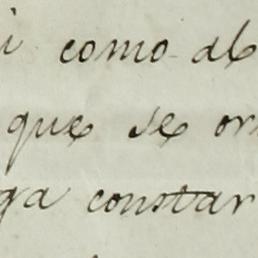 i como al
que se or
ga constar